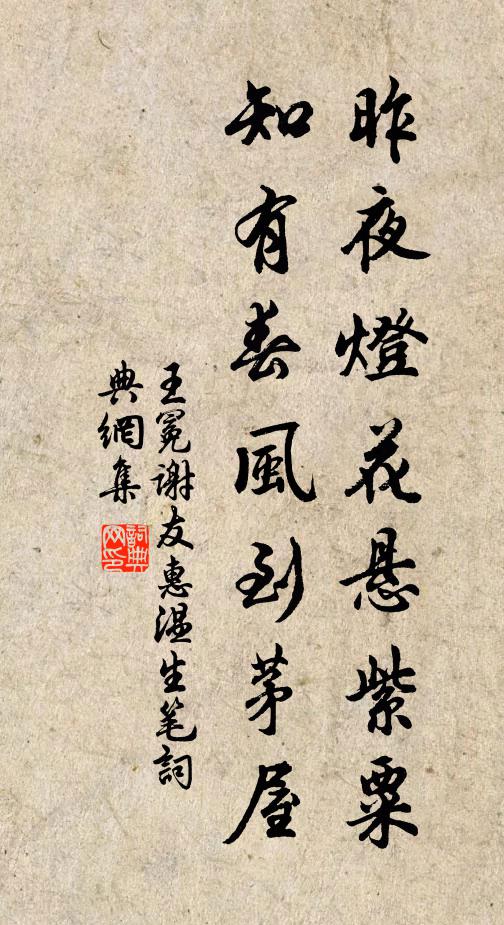 昨夜燈花悬紫粟
知有春風到茅屋
王冕谢友惠温生笔詞
典網集
詞典
网印